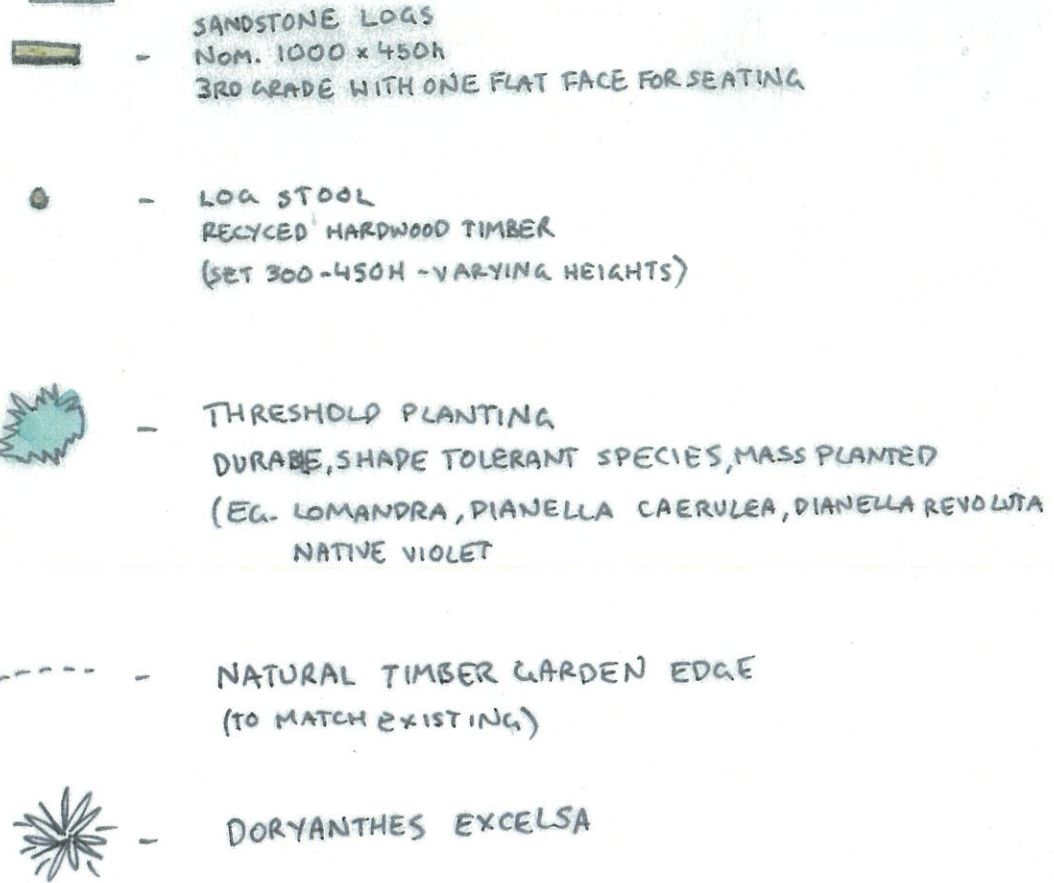 SANDSTONE LOGS
- NOM. 1000 x 450h
3RD GRADE WITH ONE FLAT FACE FOR SEATING
- LOG STOOL
RECYCED HARDWOOD TIMBER
(SET 300-450H - VARYING HEIGHTS)
- THRESHOLD PLANTING
DURABLE, SHADE TOLERANT SPECIES, MASS PLANTED
(EG. LOMANDRA, DIANELLA CAERULEA, DIANELLA REVOLUTA
NATIVE VIOLET
- NATURAL TIMBER GARDEN EDGE
(TO MATCH EXISTING)
- DORYANTHES EXCELSA